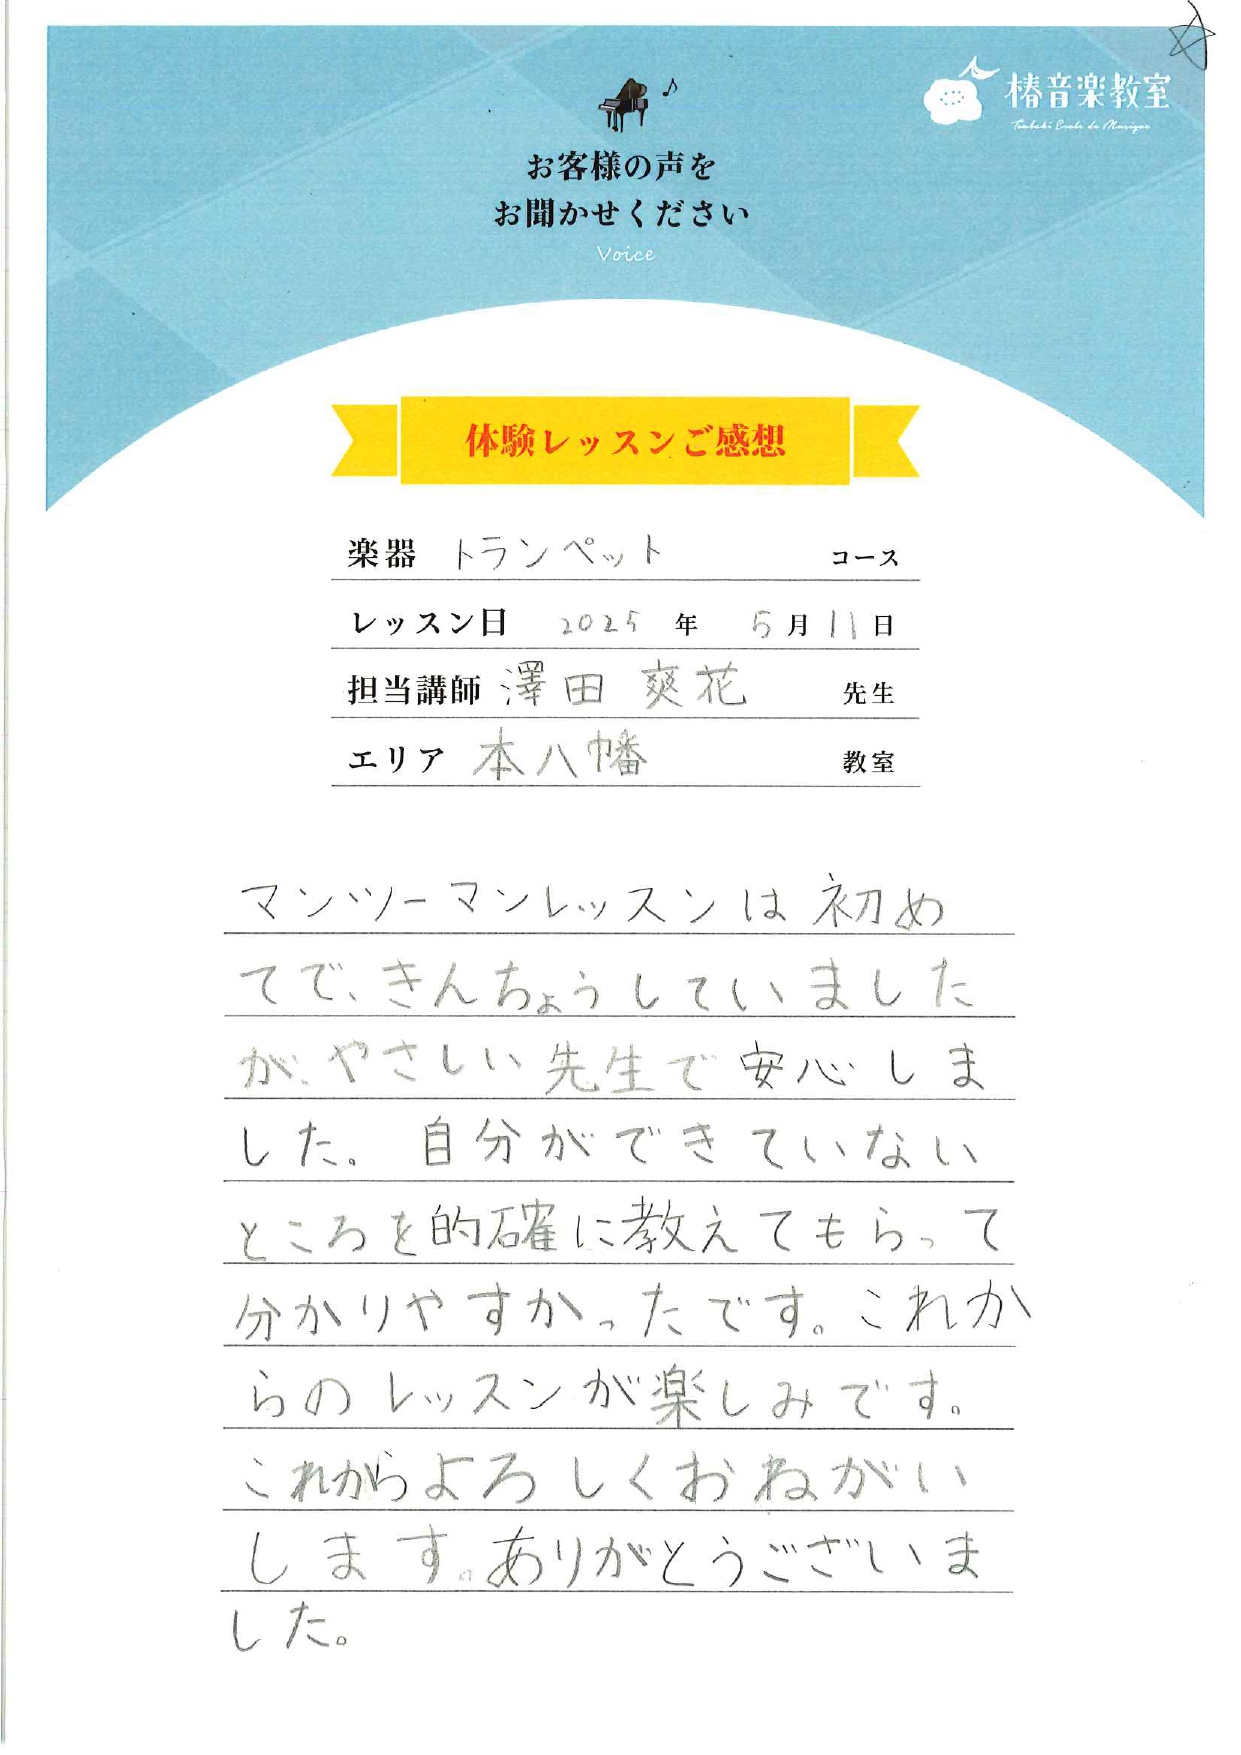 椿音楽教室
Tsubaki Ecole de Musique
お客様の声を
お聞かせください
Voice
体験レッスンご感想
楽器 トランペット コース
レッスン日 2025 年 5 月 11 日
担当講師 澤田 爽花 先生
エリア 本八幡 教室
マンツーマンレッスンは初め
てで、きんちょうしていました
が、やさしい先生で安心しま
した。自分ができていない
ところを的確に教えてもらって
分かりやすかったです。これか
らのレッスンが楽しみです。
これからよろしくおねがい
します。ありがとうございま
した。